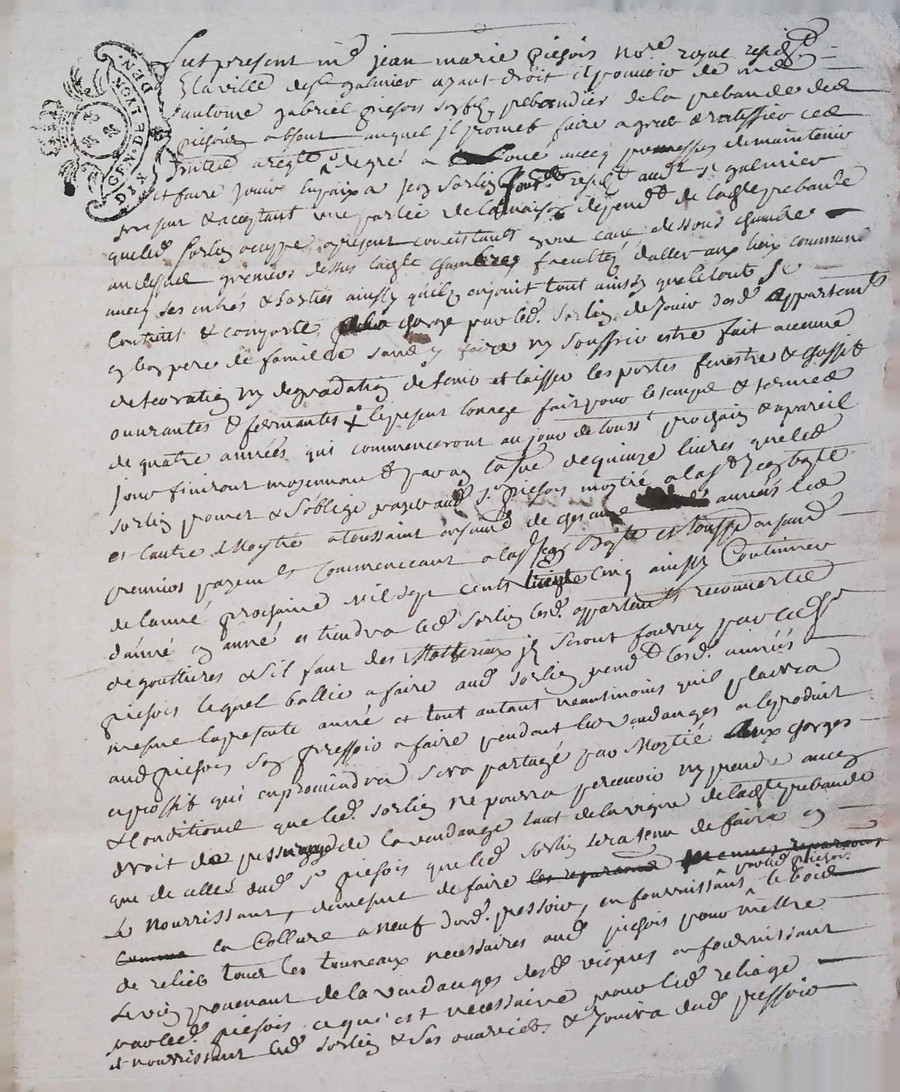 GEN. DE LYON. DIX D
fut present Me jean marie piejois Nore royal resident
a la ville de St galmier ayant droit et pouvoir de Me
antoine gabriel piejois prebandier de la prebande des
piejois absent auquel il promet faire agreer et ratiffier ces
a de gré a loué avecq promesses de maintenir
et faire jouir en paix a jean sorlin resident aud. St galmier
present et acceptant une partie de la maison dependte de lade prebande
que led. sorlin occupe apresent consistants en une cave dessous chambre
au dessus greniers dessus lade chambre faculté d'aller aux lieux communs
avecq ses entrés et sorties ainsy qu'il en jouit tout ainsy que le tout se
Contient et comporte a la charge par led. sorlin de jouir desd. appartemts
en bon pere de famille sans y faire ny souffrir estre fait aucune
deteoration ny degradation de tenir et laisser les portes fenestre et
ouvrantes et fermantes le present louage fait pour le temps et termes
de quatre années qui commenceront au jour de touss.t prochain et a pareil
jour finiront moyennant de quinze livres que led.
sorlin promet et s'oblige payer aud. Sr piejois moytié a la St jean baptte
et l'autre moytié a toussaint de chacune années les
premiers payement Commenceant a la St jean Bapte et toussaint
de l'anné prochaine mil sept cents trente cinq ainsy Continuer
d'anné en anné et tiendra led. sorlin lesd. appartements recouvertes
de gouttieres et s'il faut des Matteriaux ils seront fournis par led. Sr
piejois lequel baillie a faire aud. sorlin pendt lesd. années
mesme la presente anné et tout autant neantmoins qu'il plairra
aud. piejois son pressoir a faire pendant les vendanges et le produit
et proffit qui en proviendra sera partagé par Moytié aux charges
et Conditions que led. sorlin ne pourra percevoir ny prendre aucun
droit de pressurage de la vendange tant de la vigne de lade prebande
que de celles dud. Sr piejois que led. sorlin sera tenu de faire en
Le Nourrissant, demesme de faire
en Collure a neuf dud. pressoir, en fournissant par led. piejois le bois
de relier tous les touneaux necessaires aud. piejois pour mettre
Le vin provenant de la vendanges desd. vignes en fournissant
par led. piejois ce qui est necessaire pour led. reliage
et nourrissant led. sorlin et ses ouvriers et jouira dud. pressoir